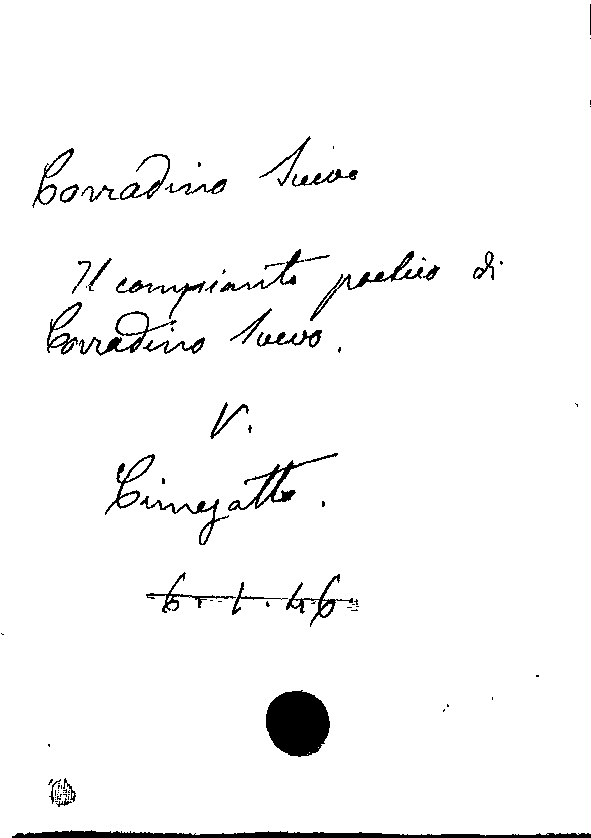 Corradino Svevo
Il compianto poetico di
Corradino Svevo.
V.
Cimegatto.
6.1.46.